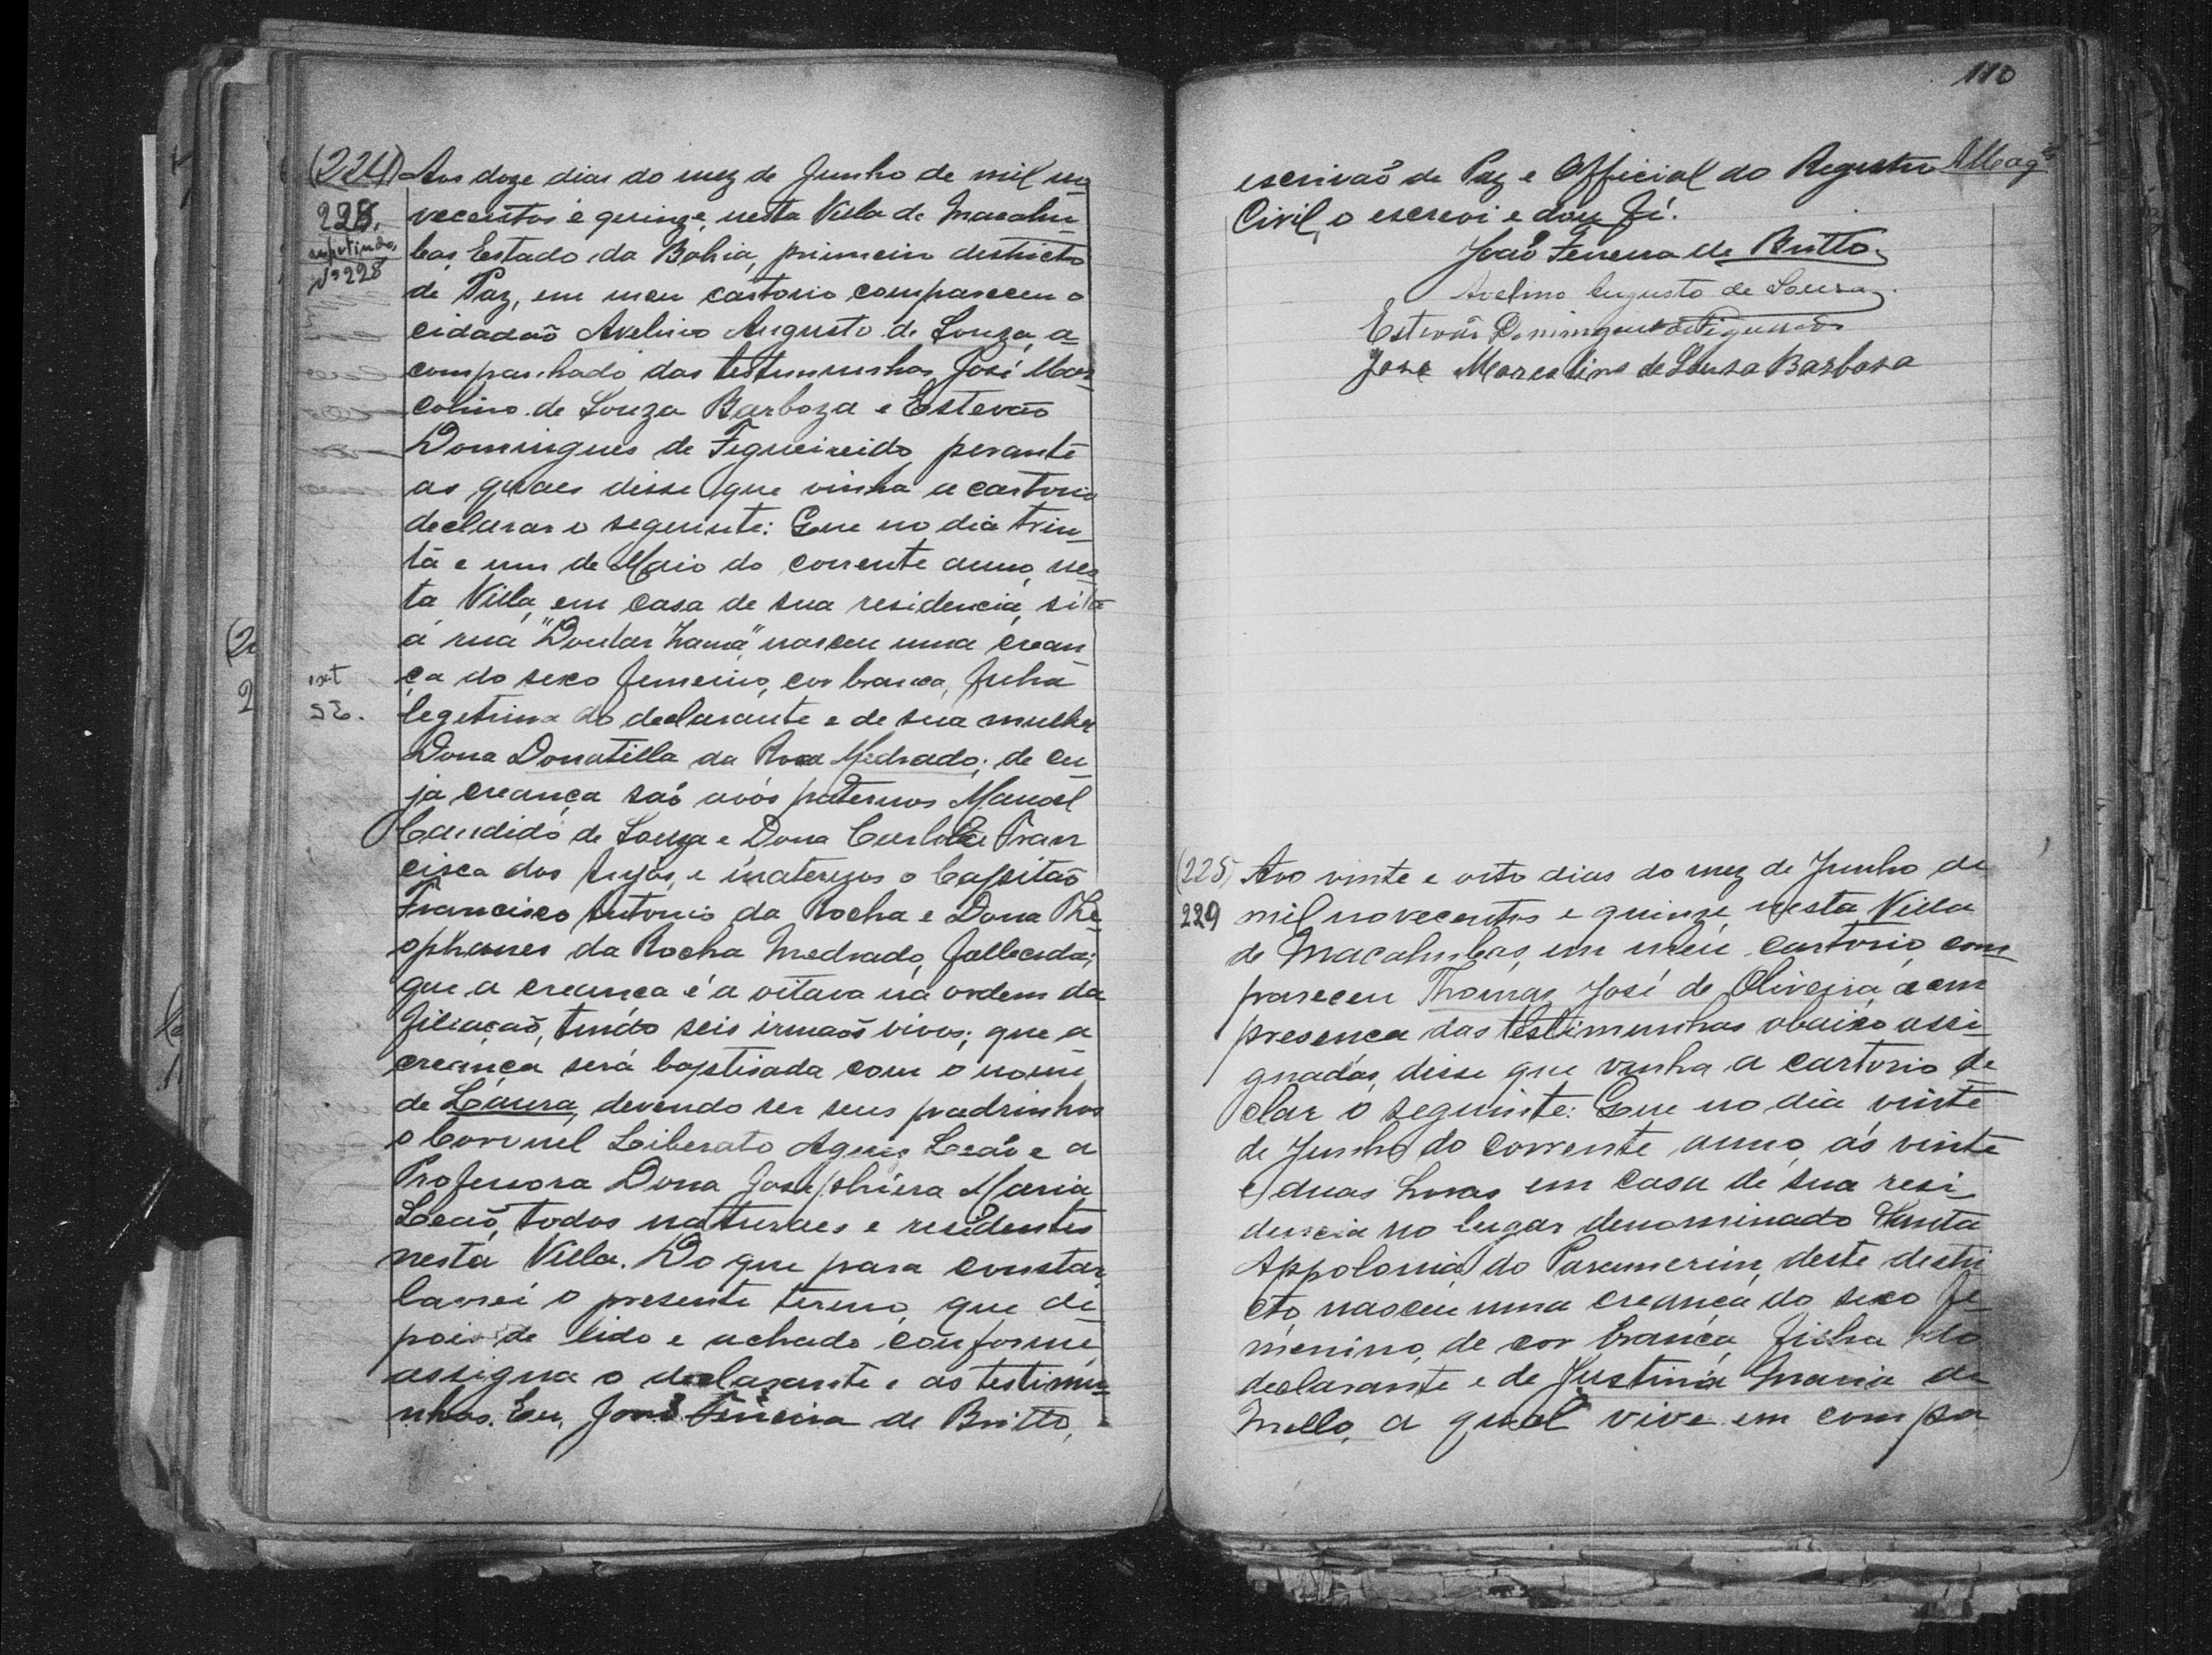 (224) Aos doze dias do mez de Junho de mil no
228. vecentos e quinze, nesta Villa de Macahu
bas, Estado da Bahia, primeiro destricto
Nº 228
de Paz, em meu cartorio compareceu o
cidadaõ Avelino Augusto de Souza, a
companhado das testemunhas José Mar
colino de Souza Barboza e Estevão
Domingues de Figueireido perante
as quaes disse que vinha a cartorio
declarar o seguinte: Que no dia trin
ta e um de Maio do corrente anno, nes
ta Villa, em casa de sua residencia, sita
á rua "Doutor" nasceu uma crean
ça do sexo femenino, cor branca, filha
legetima do declarante e de sua mulher
Dona Donatilla da Medrado; de cu
ja creança saõ avós paternos Manoel
Candido de Souza e Dona Fran
cisca dos Anjos, e maternos o Capitão
Francisco Antonio da Rocha e Dona The
ophanes da Rocha Medrado, fallecida;
que a creança é a oitava na ordem da
filiaçaõ, tendo seis irmaõs vivos; que a
creança será baptisada com o nome
de Laura, devendo ser seus padrinhos
o Coronel Liberato Leaõ e a
Professora Dona Josephina Maria
Leaõ, todos naturaes e residentes
nesta Villa. Do que para constar,
lavrei o presente termo, que de
pois de lido e achado conforme,
assigna o declarante e as testimu
nhas. Eu, João Ferreira de Britto,
110
escrivaõ de Paz e Official do Registro
Civil, o escrevi e dou fé.
João Ferreira de Britto
Avelino Augusto de Souza
Estevão Domingues de Figueiredo
José Marcolino de Souza Barbosa
(225) Aos vinte e oito dias do mez de Junho de
229 mil novecentos e quinze, nesta Villa
de Macahubas, em meu cartorio, com
pareceu Thomaz José de Oliveira, e em
presença das testimunhas abaixo assi
gnadas, disse que vinha a cartorio de
clar o seguinte: Que no dia vinte
de Junho do corrente anno, ás vinte
e duas horas em casa de sua resi
dencia no lugar denominado Santa
Appolonia do Paramerim, deste destri
cto, nasceu uma creança do sexo fe
menino, de cor branca, filha do
declarante e de Justina Maria de
Mello, a qual vive em compa